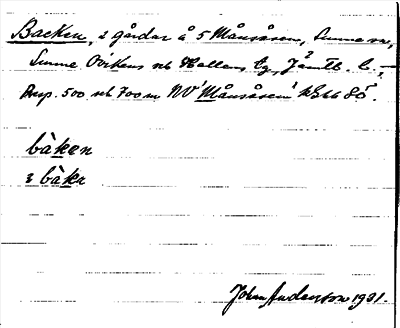 Backen, 2 gårdar å 5 Månsåsen, Sunne sn,
Sunne Ovikens och Hallens tg, Jämtl. l.,
Resp. 500 och 700 m NV Månsåsen GSbl 85.
bàken
bàkr
John Anderson 1931.